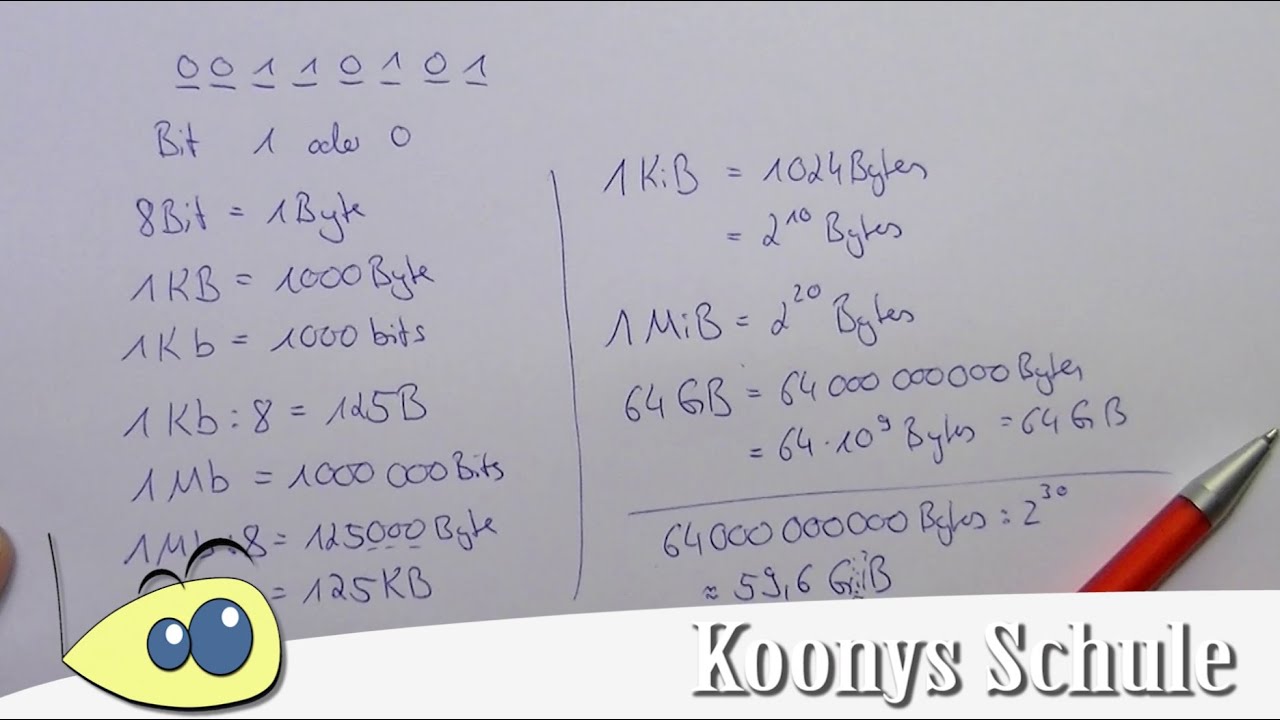 0 0 1 1 0 1 0 1
Bit 1 oder 0
8Bit = 1Byte
1KB = 1000Byte
1Kb = 1000bits
1Kb:8 = 125B
1Mb = 1000 000Bits
1Mb:8 = 125000Byte
= 125KB
1KiB = 1024Bytes
= 2¹⁰ Bytes
1MiB = 2²⁰ Bytes
64GB = 64 000 000000 Bytes
= 64·10⁹ Bytes = 64GB
64000 000000 Bytes : 2³⁰
≈ 59,6 GiB
Koonys Schule